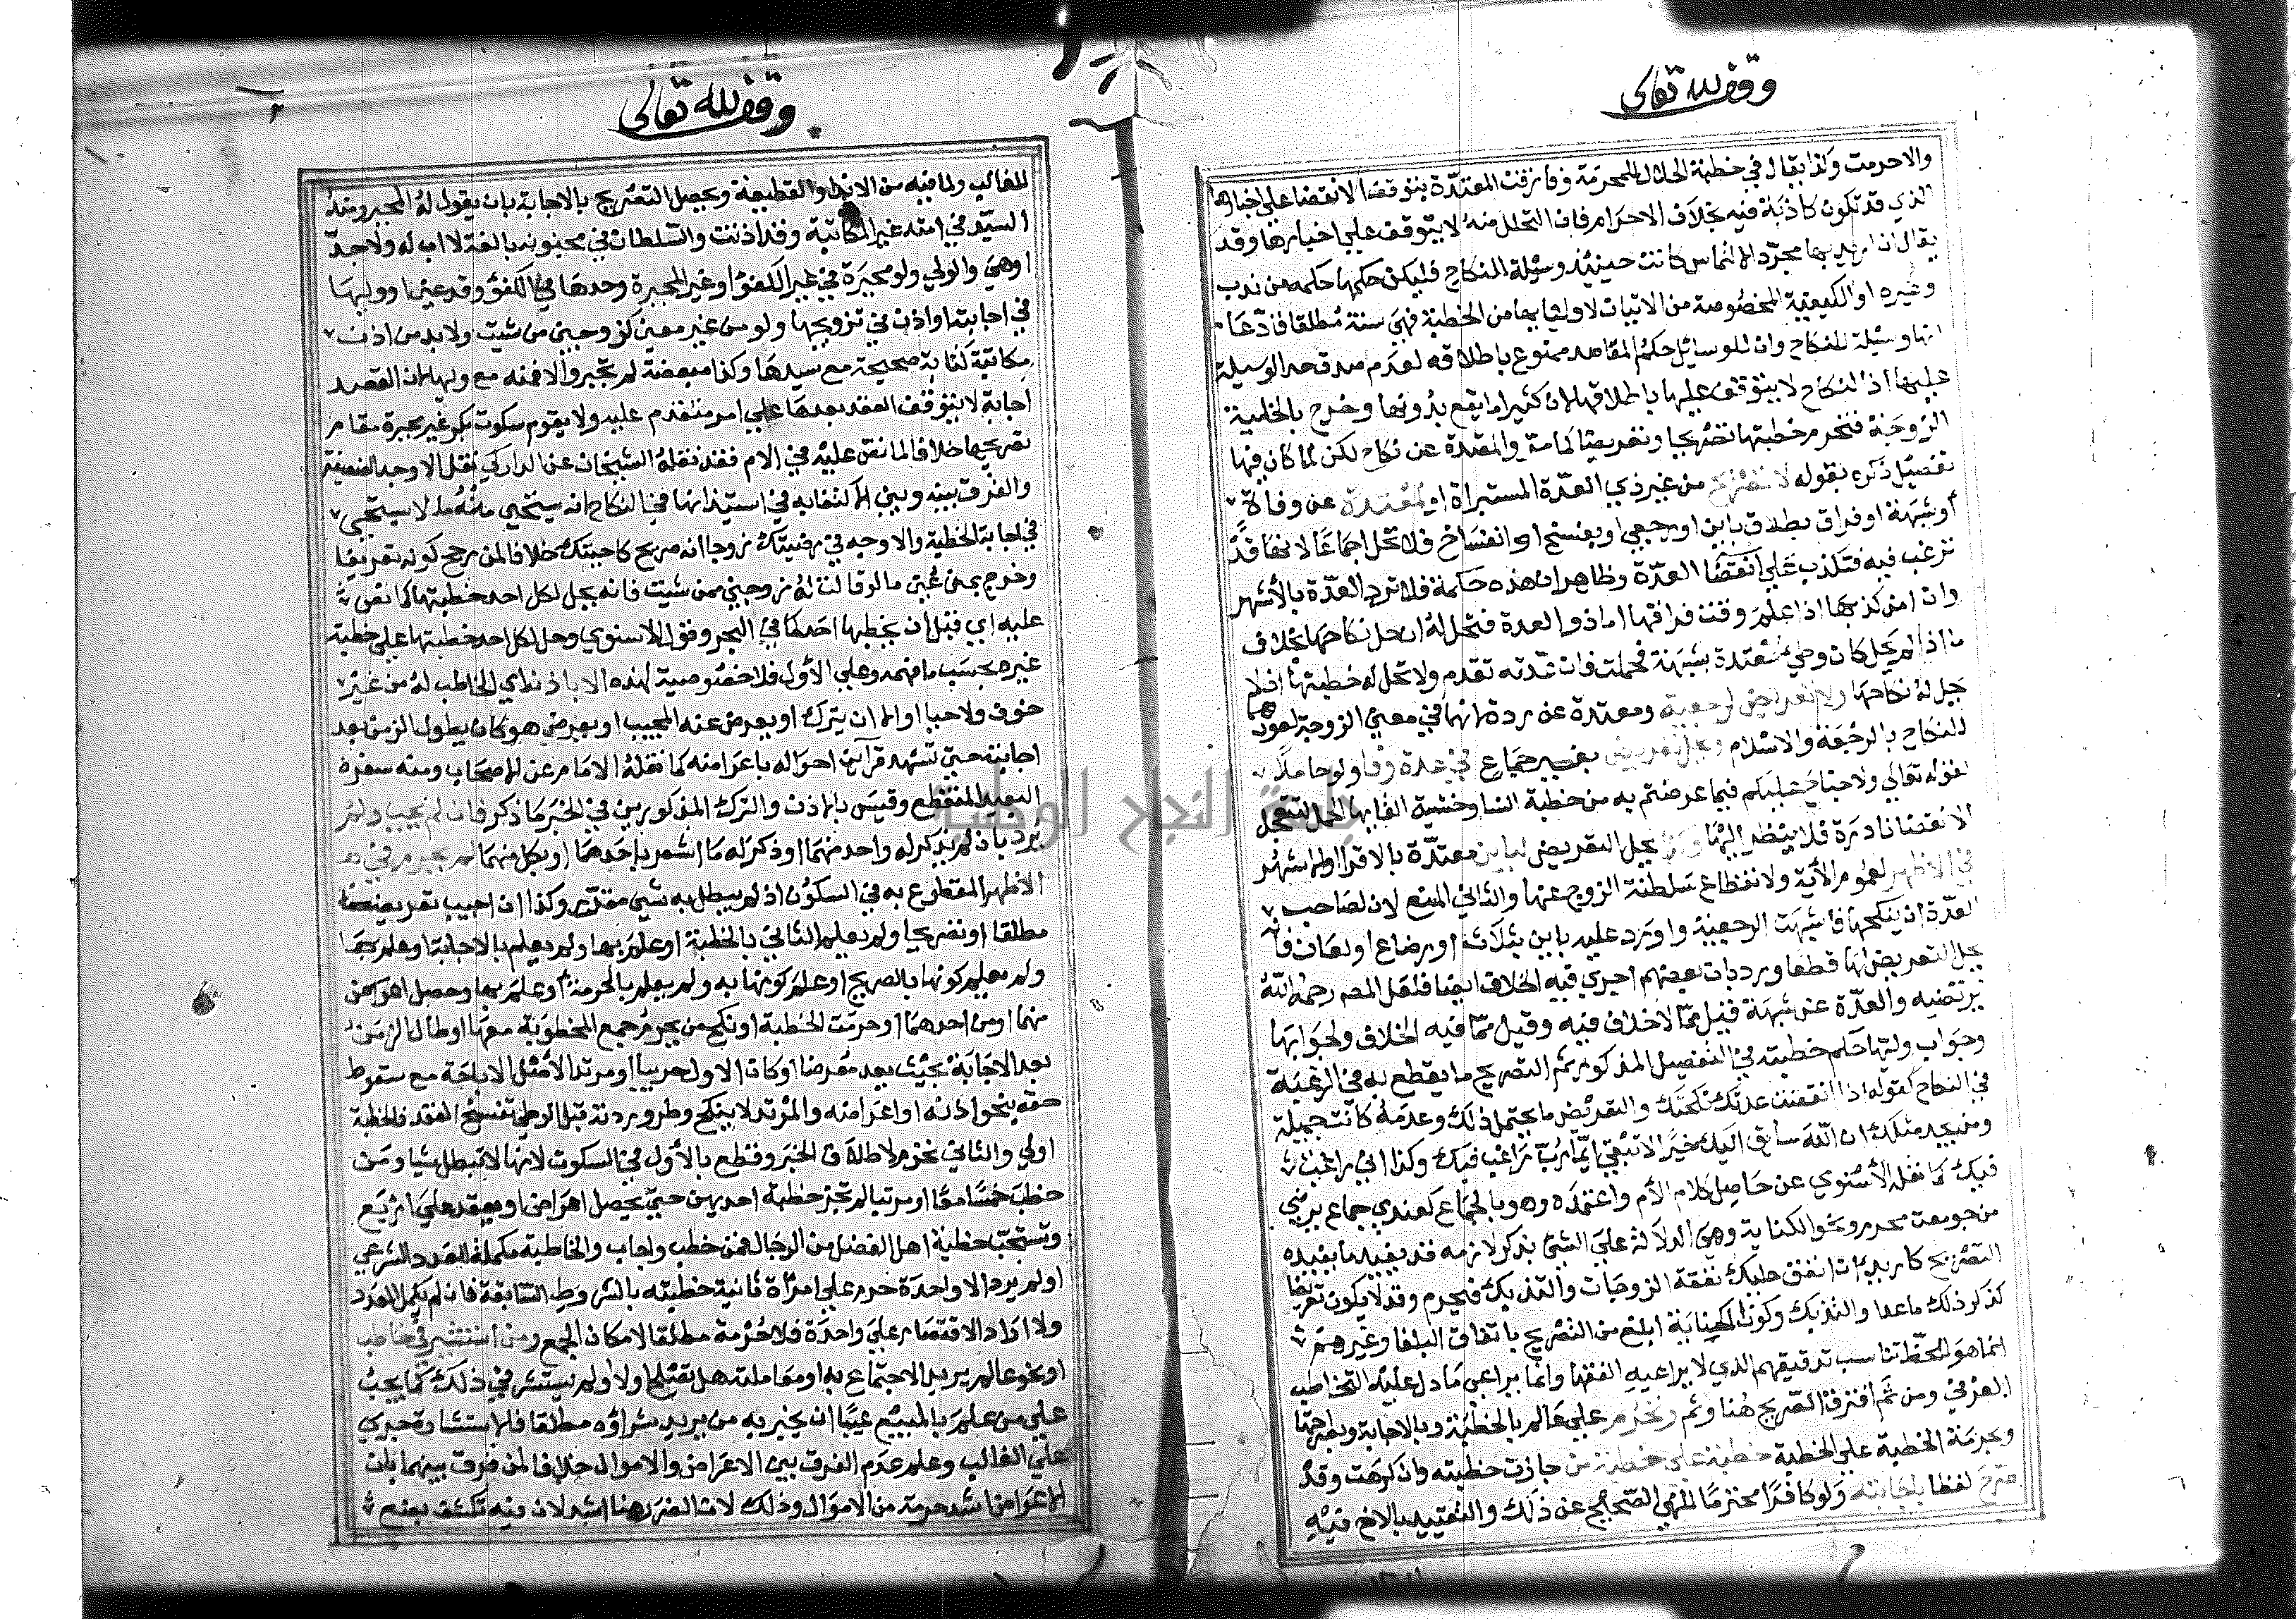 وقف لله تعالى
والا حرمت وكذا يقال في خطبة الحلال للمحرمة وفارقت المعتدة بتوقف الانقضا علي اخبارها
الذي قد تكون كاذبة فيه بخلاف الاحرام فان التحلل منه لا يتوقف علي اخبارها وقد
يقال ان اريد بها مجرد الالتماس كانت حينيذ وسيلة للنكاح فليكن حكمها حكمه من ندب
وغيره او الكيفية المخصوصة من الاتيان لاوليايها من الخطبة فهي سنة مطلقا فادعا
انها وسيلة للنكاح وان للوسائل حكم المقاصد ممنوع باطلاقه لعدم صدق حد الوسيلة
عليها اذ النكاح لا يتوقف عليها باطلاقها لان كثيرا ما يقع بدونها وخرج بالخلية
الزوجة فتحرم خطبتها تصريحا وتعريضا كامة والمعتدة عن نكاح لكن لما كان فيها
تفصيل ذكره بقوله لا تصريح من غير ذي العدة المستبراة او لمعتدة عن وفاة
او شبهة او فراق بطلاق باين او رجعي او بفسخ او انفساخ فلا تحل اجماعا لانها قد
ترغب فيه فتكذب علي انقضا العدة وظاهر ان هذه حكمة فلا ترد العدة بالاشهر
وان امن كذبها اذا علم وقت فراقها اما ذو العدة فتحل له ان حل نكاحها بخلاف
ما اذا لم يحل كان وطي معتدة بشبهة فحملت فان عدته تقدم ولا تحل له خطبتها اذ لم
يحل له نكاحها ولا تعريض لرجعية ومعتدة عن ردة لانها في معني الزوجة لعودها
للنكاح بالرجعة والاسلام ويحل تعريض بغير جماع في عدة وفاة ولو حاملا
لقوله تعالي ولا جناح عليكم فيما عرضتم به من خطبة النسا وخشية القايها الحمل لتتعجل
الانقضا نادرة فلا ينظر اليها وكذا يحل التعريض لباين معتدة بالاقرا او الاشهر
في الاظهر لعموم الاية ولانقطاع سلطنة الزوج عنها والثاني المنع لان لصاحب
العدة ان ينكحها فاشبهت الرجعية واورد عليه باين بثلاث او رضاع او لعان فانه
يحل التعريض لها قطعا ورد بان بعضهم اجري فيه الخلاف ايضا فلعل المص رحمه الله
يرتضيه والعدة عن شبهة قيل مما لا خلاف فيه وقيل مما فيه الخلاف ولجوابها
وجواب وليها حكم خطبته في التفصيل المذكور ثم التصريح ما يقطع به في الرغبة
في النكاح كقوله اذا انقضت عدتك نكحتك والتعريض ما يحتمل ذلك وعدمه كانت جميلة
ومن يجد مثلك ان الله سايق اليك خيرا لا تبقي ايما رب راغب فيك وكذا اني راغب
فيك كما نقله الاسنوي عن حاصل كلام الام واعتمده وهو بالجماع كعندي جماع يرضي
من جومعت محرم ونحو الكناية وهي الدلالة علي الشي بذكر لازمه قد يفيد ما يفيده
التصريح كاريد ان انفق عليك نفقة الزوجات والتذ بك فيحرم وقد لا يكون تعريضا
كذكر ذلك ما عدا والتذ بك وكون الكناية ابلغ من التصريح باتفاق البلغا وغيرهم
انما هو لملحظ يناسب تدقيقهم الذي لا يراعيه الفقها وانما يراعي ما دل عليه التخاطب
العرفي ومن ثم افترق الصريح هنا وثم وتحرم علي عالم بالخطبة وبالاجابة وبصراحتها
وبحرمة الخطبة علي الخطبة خطبة علي خطبة من جازت خطبته وان كرهت وقد
صرح لفظا باجابته ولو كافرا محترما للنهي الصحيح عن ذلك والتقييد بالاخ فيه
وقف لله تعالى
٢
للغالب ولما فيه من الايذا والقطيعة ويحصل التصريح بالاجابة بان يقول له المجبر ومنه
السيد في امته غير المكاتبة وقد اذنت والسلطان في مجنونة بالغة لا اب لها ولا جد
او هي والولي ولو مجبرة في غير الكفؤ او غير المجبرة وحدها في الكفؤ وقد عينها ووليها
في اجابته او اذن في تزويجها ولو من غير معين كزوجني من شيت ولا بد من اذن
مكاتبة كتابة صحيحة مع سيدها وكذا مبعضة لم تجبر والا فمنه مع وليها لان القصد
اجابة لا يتوقف العقد بعدها علي امر متقدم عليه ولا يقوم سكوت بكر غير مجبرة مقام
تصريحها خلافا لما نص عليه في الام فقد نقله الشيخان عن الداركي نقل الاوجه الضعيفة
والفرق بينه وبين الاكتفا به في استيذانها في النكاح انه يستحيي منه ما لا يستحيي
في اجابة الخطبة والاوجه في رضيتك زوجا انه صريح كاجبتك خلافا لمن رجح كونه تعريضا
وخرج بمن يجبر ما لو قالت له زوجني ممن شيت فانه يحل لكل احد خطبتها كما نص
عليه اي قبل ان يخطبها احد كما في البحر وقول الاسنوي وحل لكل احد خطبتها علي خطبة
غيره بحسب ما فهمه وعلي الاول فلا خصوصية لهذه الا باذن اي الخاطب له من غير
خوف ولا حيا او الا ان يترك او يعرض عنه المجيب او يعرض هو كان يطول الزمن بعد
اجابته حتي تشهد قراين احواله باعراضه كما نقله الامام عن الاصحاب ومنه سفره
البعيد المنقطع وقيس بالاذن والترك المذكورين في الخبر ما ذكر فان لم يجب ولم
يرد بان لم يذكر له واحد منهما او ذكر له ما اشعر باحدهما او بكل منهما لم يحرم في
الاظهر المقطوع به في السكوت اذ لم يبطل به شي مقدر وكذا ان اجيب تعريضا
مطلقا او تصريحا ولم يعلم الثاني بالخطبة او علم بها ولم يعلم بالاجابة او علم بها
ولم يعلم كونها بالصريح او علم كونها به ولم يعلم بالحرمة او علم بها وحصل اعراض
منهما او من احدهما او حرمت الخطبة او نكح من يحرم جمع المخطوبة معها او طال الزمن
بعد الاجابة بحيث يعد معرضا او كان الاول حربيا او مرتدا لاصل الاباحة مع سقوط
حقه بنحو اذنه او اعراضه والمرتد لا ينكح وطرو ردته قبل الوطي تفسخ العقد فالخطبة
اولي والثاني تحرم لاطلاق الخبر وقطع بالاول في السكوت لانها لا تبطل شيا ومن
خطب خمسا معا او مرتبا لم تجز خطبة احديهن حتي يحصل اعراض او يعقد علي اربع
وتستحب خطبة اهل الفضل من الرجال فمن خطب واجاب والخاطبة مكملة للعدد الشرعي
او لم يرد الا واحدة حرم علي امراة ثانية خطبته بالشروط السابقة فان لم يكمل العدد
ولا اراد الاقتصار علي واحدة فلا حرمة مطلقا لامكان الجمع ومن استشير في خاطب
او نحو عالم يريد الاجتماع به او معاملته هل تصلح او لا ولو لم يستشر في ذلك كما يجب
علي من علم بالمبيع عيبا ان يخبر به من يريد شراؤه مطلقا فالاستشارة جري
علي الغالب وعلم عدم الفرق بين الاعراض والاموال خلافا لمن فرق بينهما بان
الاعراض اشد حرمة من الاموال وذلك لان الضرر هنا اشد لان فيه تكشف بضع